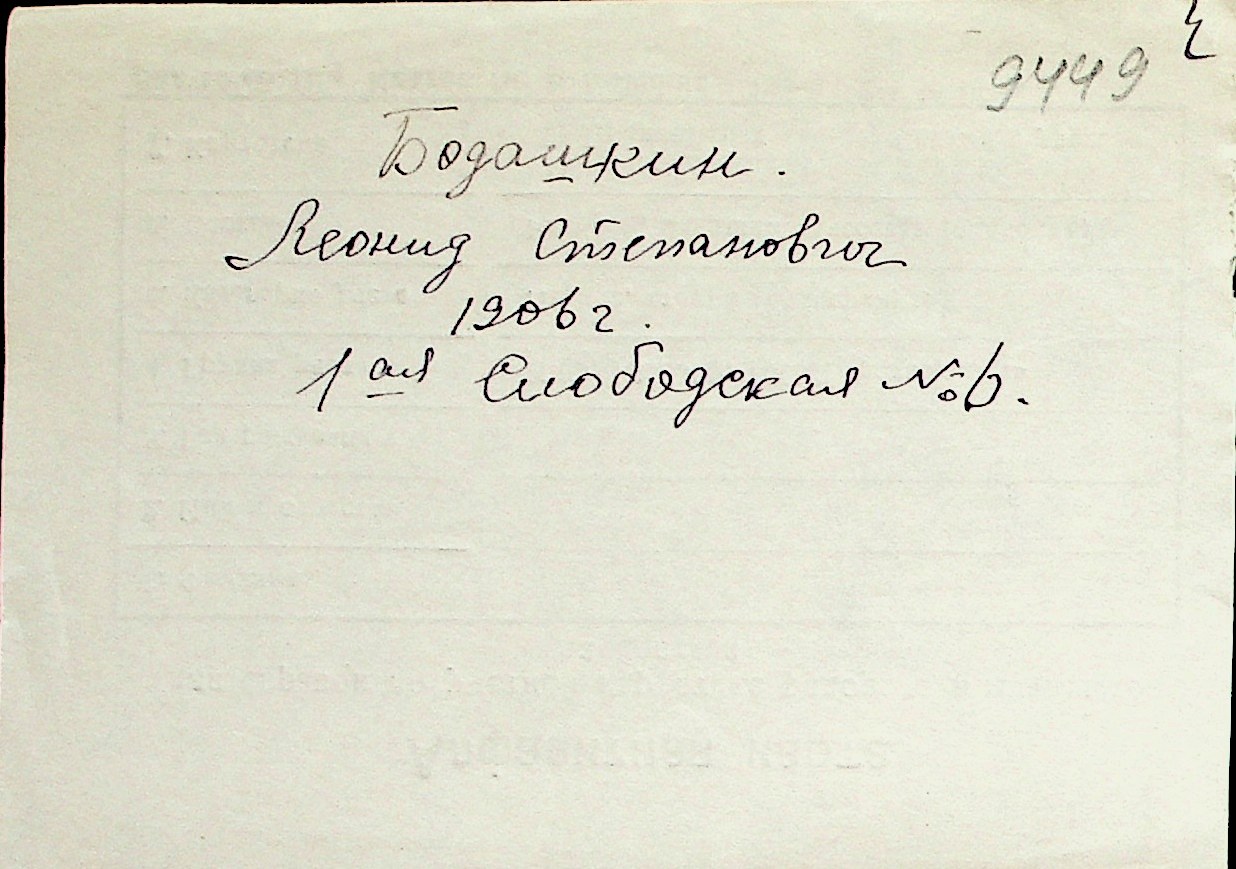 9449
Бодашкин.
Леонид Степанович
1906 г.
1ая Слободская № 6.